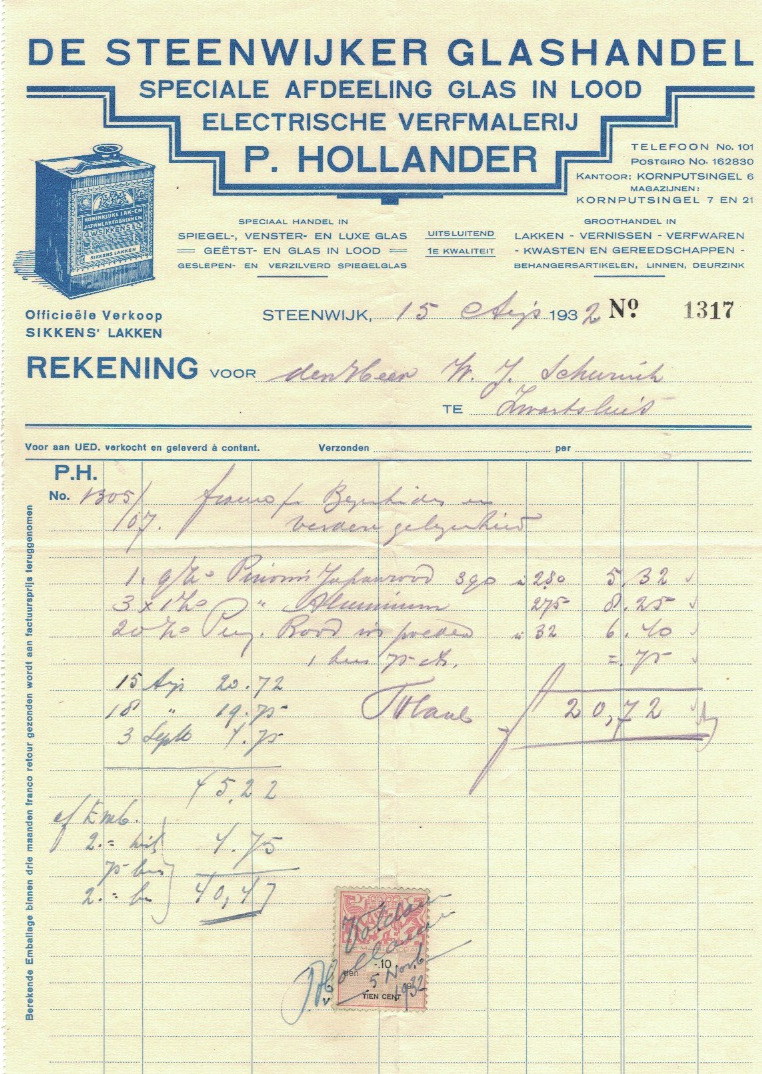 DE STEENWIJKER GLASHANDEL
SPECIALE AFDEELING GLAS IN LOOD
ELECTRISCHE VERFMALERIJ
P. HOLLANDER
TELEFOON No. 101
POSTGIRO No. 162830
KANTOOR: KORNPUTSINGEL 6
MAGAZIJNEN:
KORNPUTSINGEL 7 EN 21
SIKKENS LAKKEN
SPECIAAL HANDEL IN
SPIEGEL-, VENSTER- EN LUXE GLAS
GEËTST- EN GLAS IN LOOD
GESLEPEN- EN VERZILVERD SPIEGELGLAS
UITSLUITEND
1E KWALITEIT
GROOTHANDEL IN
LAKKEN - VERNISSEN - VERFWAREN
- KWASTEN EN GEREEDSCHAPPEN -
BEHANGERSARTIKELEN, LINNEN, DEURZINK
Officieële Verkoop
SIKKENS' LAKKEN
STEENWIJK, 15 Aug 1932 No. 1317
REKENING VOOR den Heer W. J. Schurink
TE Zwartsluis
Voor aan UED. verkocht en geleverd à contant. Verzonden per
P.H.
No. 1305/
107. verdere gelegenheid
1. Japanrood 390 a 280 5.32
3 x 1 Ko " Aluminium 275 8.25
20 Ko Rood in poeder a 32 6.40
1 bus 75 ct. =.75
15 Aug 20.72
Totaal 20,72
18 " 19.75
3 Sept 4.75
45.22
af Emb.
2.=
4.75
75 bus
2.= 40,47
-.10
TIEN CENT
Voldaan
P Hollander
5 Novb
1932
Berekende Emballage binnen drie maanden franco retour gezonden wordt aan factuursprijs teruggenomen